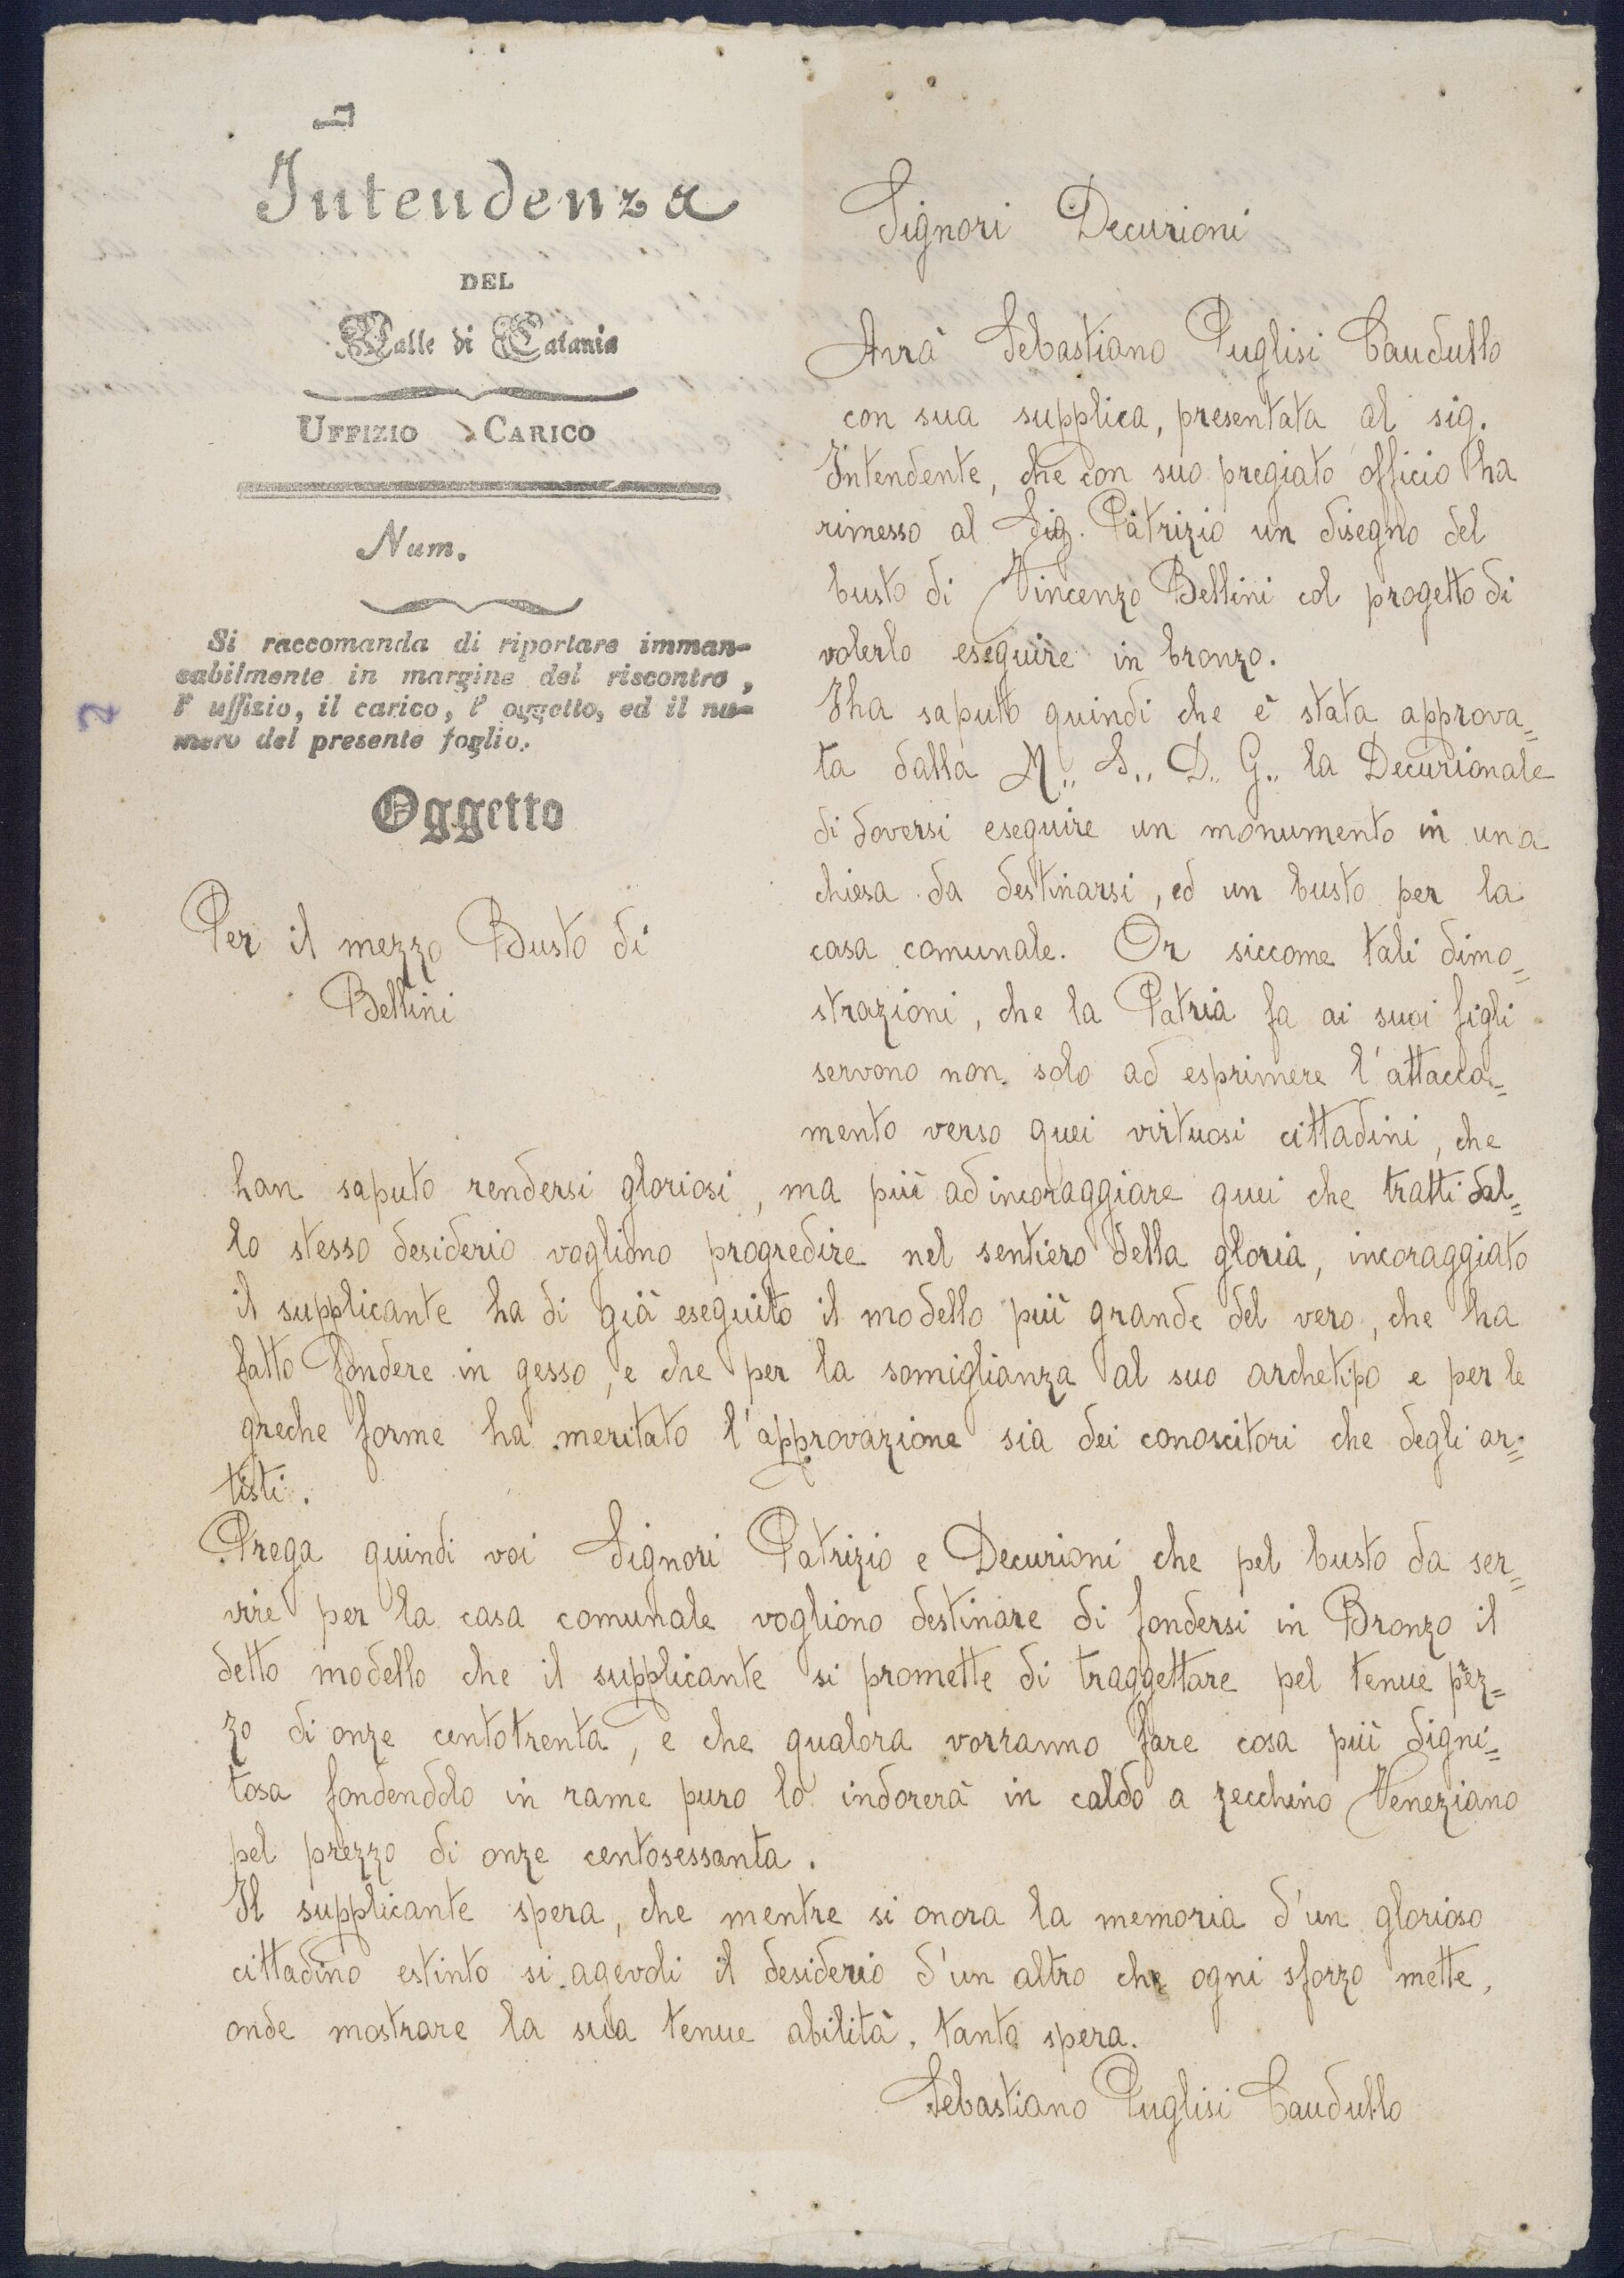 Intendenza
DEL
Valle di Catania
UFFIZIO CARICO
Num.
Si raccomanda di riportare imman-
cabilmente in margine del riscontro,
l' uffizio, il carico, l' oggetto, ed il nu-
mero del presente foglio.
Oggetto
Per il mezzo Busto di
Bellini
2
Signori Decurioni
Avrà Sebastiano Puglisi Caudullo
con sua supplica, presentata al sig.
Intendente, che con suo pregiato officio ha
rimesso al Sig. Patrizio un disegno del
busto di Vincenzo Bellini col progetto di
volerlo eseguire in bronzo.
Iha saputo quindi che è stata approva„
ta dalla M.. S.. D.. G.. la Decurionale
di doversi eseguire un monumento in una
chiesa da destinarsi, ed un busto per la
casa comunale. Or siccome tali dimo„
strazioni, che la Patria fa ai suoi figli
servono non solo ad esprimere l'attacca„
mento verso quei virtuosi cittadini, che
han saputo rendersi gloriosi, ma più ad incoraggiare quei che tratti dal„
lo stesso desiderio vogliono progredire nel sentiero della gloria, incoraggiato
il supplicante ha di già eseguito il modello più grande del vero, che ha
fatto fondere in gesso, e che per la somiglianza al suo archetipo e per le
greche forme ha meritato l'approvazione sia dei conoscitori che degli ar„
tisti.
Prega quindi voi Signori Patrizio e Decurioni che pel busto da ser„
vire per la casa comunale vogliono destinare di fondersi in Bronzo il
detto modello che il supplicante si promette di traggettare pel tenue pez„
zo di onze centotrenta, e che qualora vorranno fare cosa più digni„
tosa fondendolo in rame puro lo indorerà in caldo a zecchino Veneziano
pel prezzo di onze centosessanta.
Il supplicante spera, che mentre si onora la memoria d'un glorioso
cittadino estinto si agevoli il desiderio d'un altro che ogni sforzo mette,
onde mostrare la sua tenue abilità, tanto spera.
Sebastiano Puglisi Caudullo